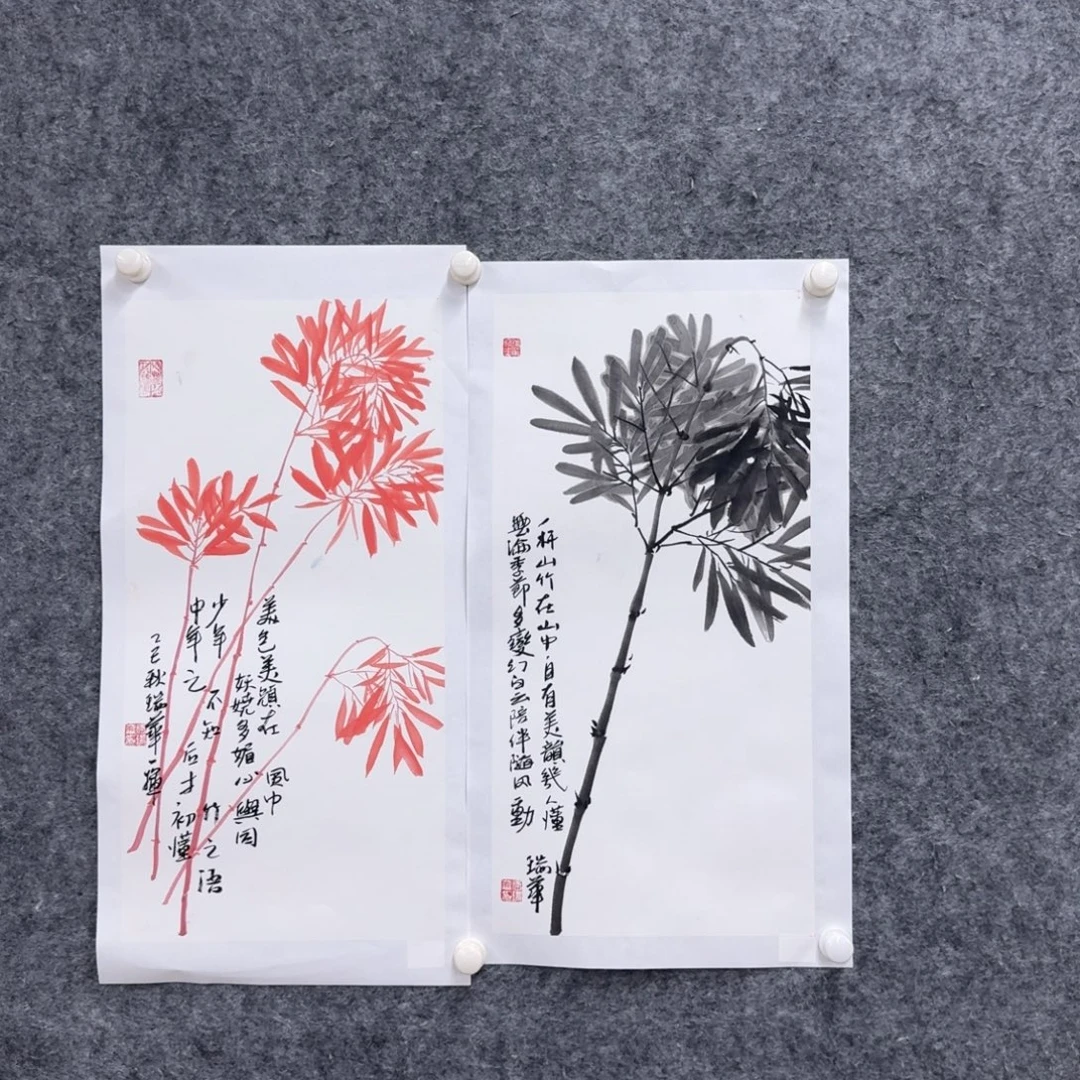 美色美穎在風中
妖嬈多媚心與同
少年不知竹之語
中年之后才初懂
乙巳秋瑞華一揮
一杆山竹在山中自有美韻幾人懂
無論季節多變幻白云陪伴隨风動
瑞華